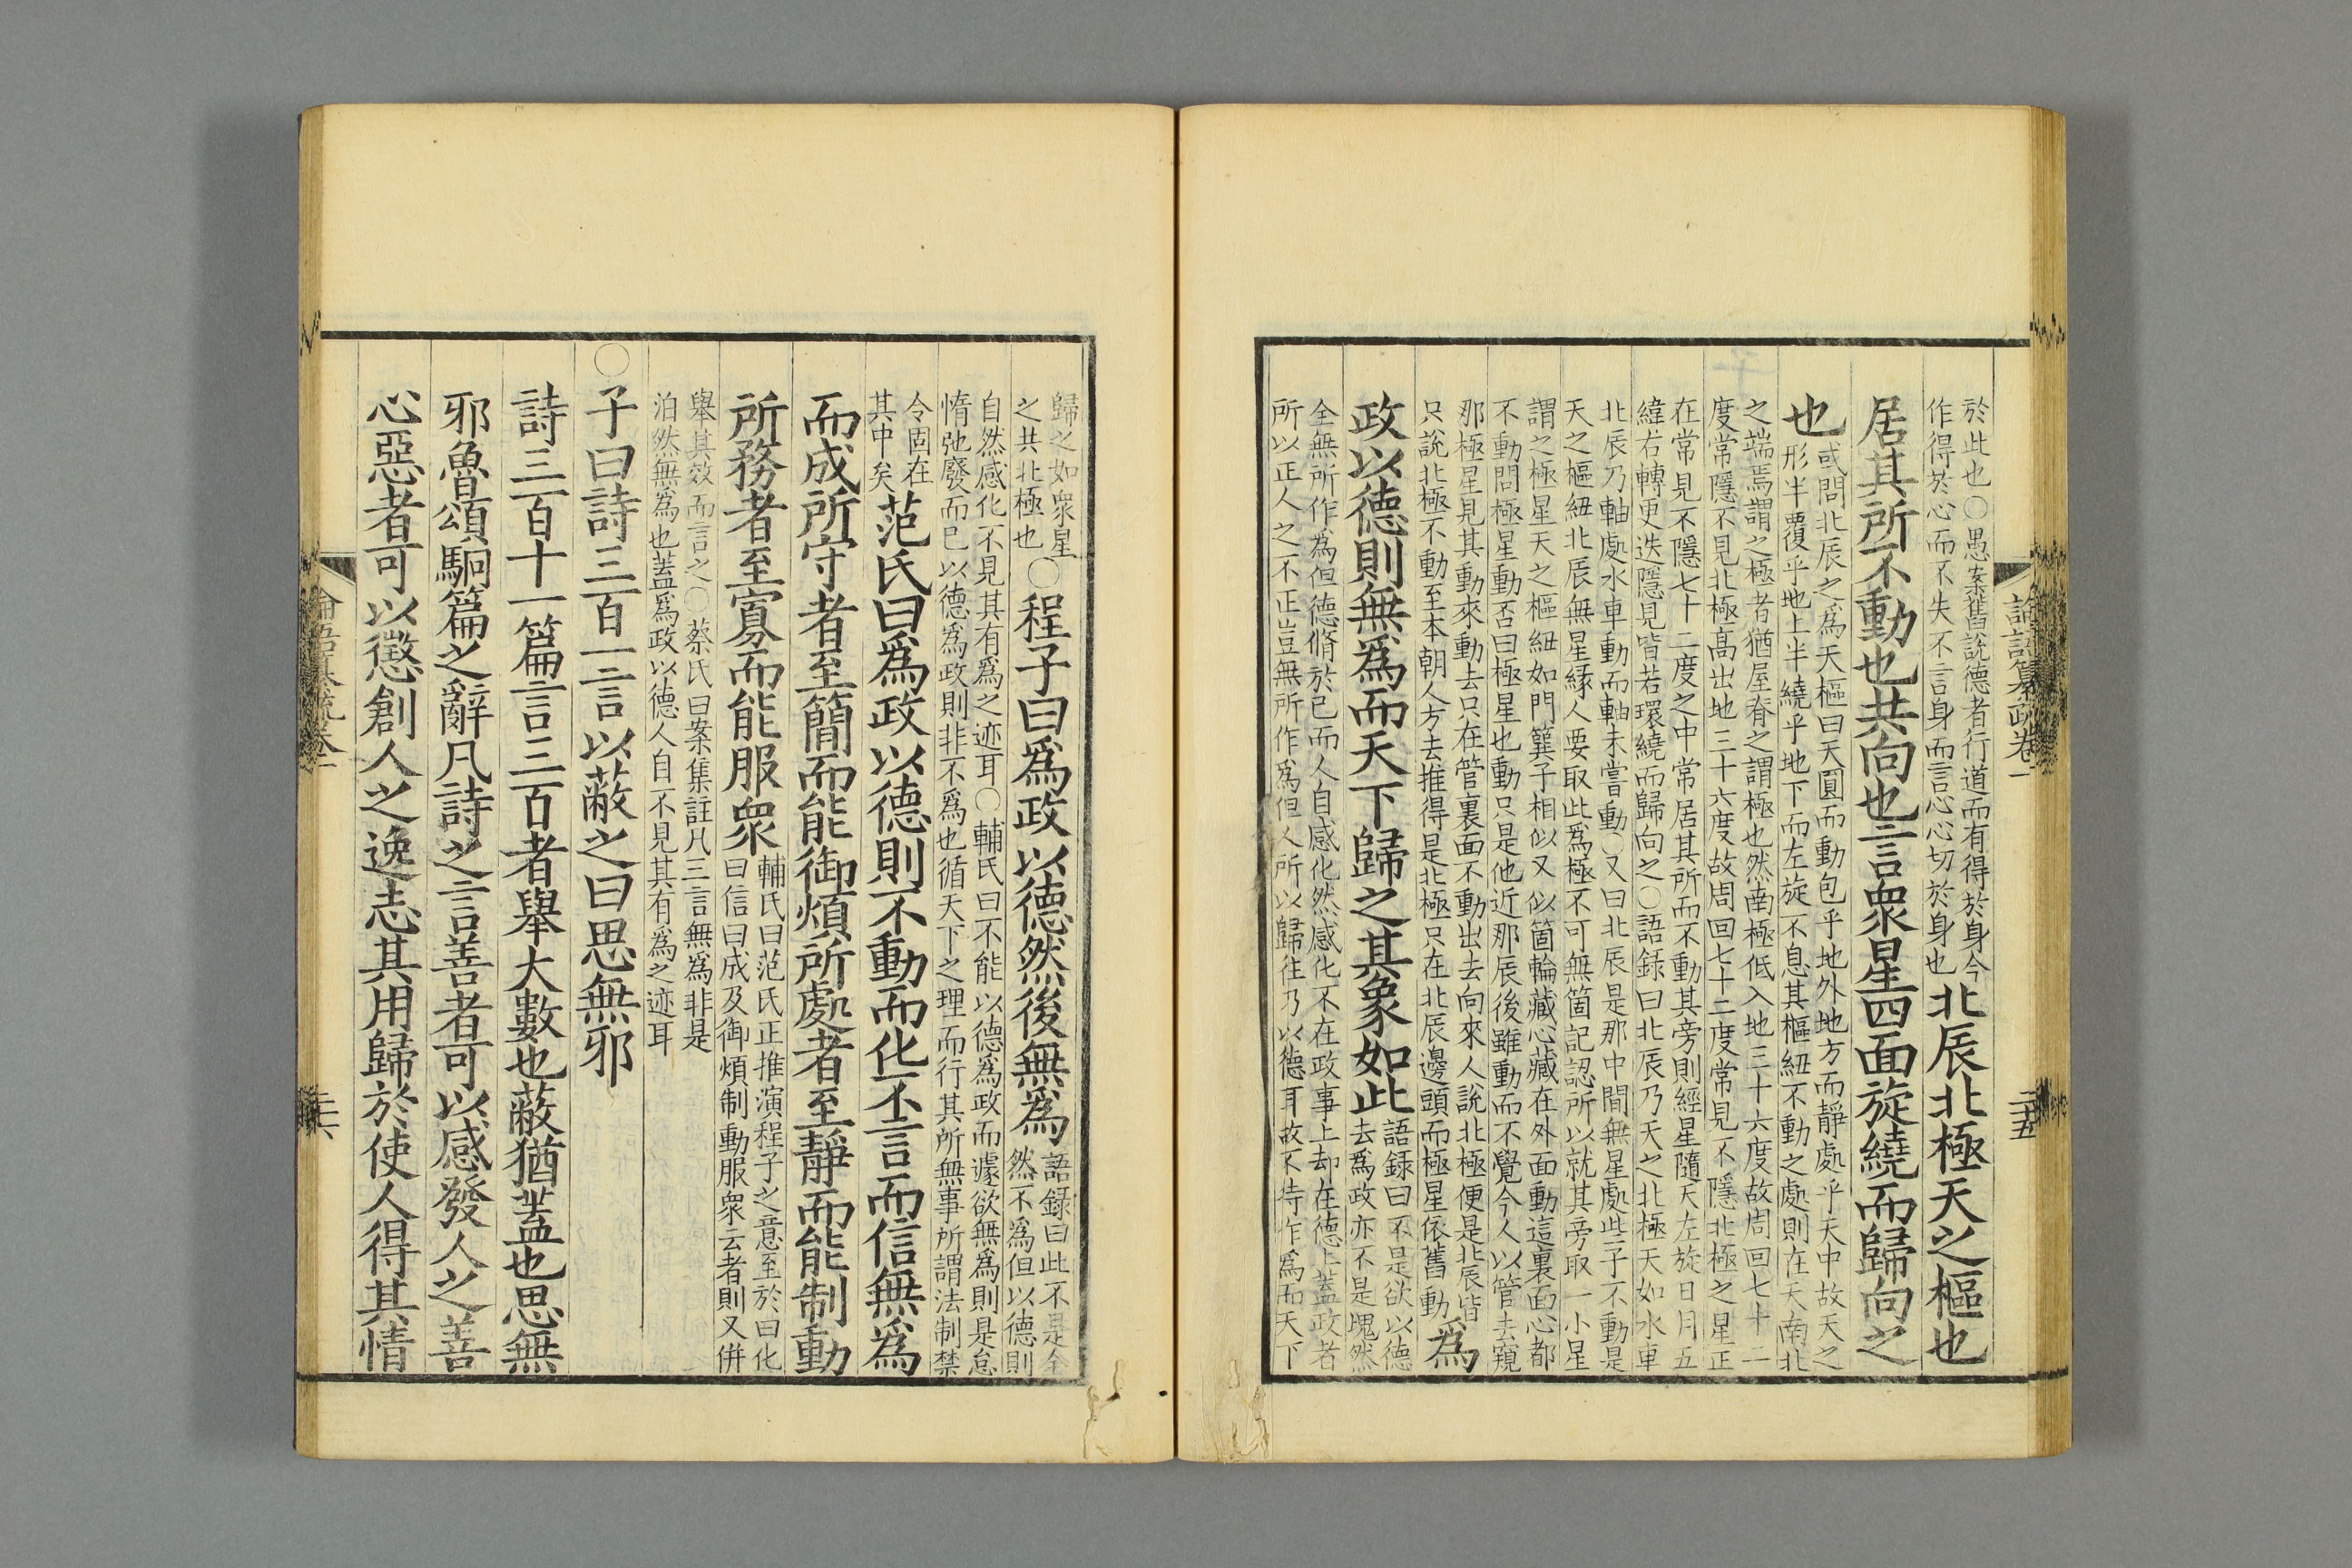 論語纂疏卷一
二十五
於此也○愚案舊說德者行道而有得於身今
作得於心而不失不言身而言心心切於身也
北辰北極天之樞也
居其所不動也共向也言衆星四面旋繞而歸向之
也
或問北辰之為天樞曰天圓而動包乎地外地方而靜處乎天中故天之
形半覆乎地上半繞乎地下而左旋不息其樞紐不動之處則在天南北
之端焉謂之極者猶屋脊之謂極也然南極低入地三十六度故周回七十二
度常隱不見北極高出地三十六度故周回七十二度常見不隱北極之星正
在常見不隱七十二度之中常居其所而不動其旁則經星隨天左旋日月五
緯右轉更迭隱見皆若環繞而歸向之○語錄曰北辰乃天之北極天如水車
北辰乃軸處水車動而軸未嘗動○又曰北辰是那中間無星處些子不動是
天之樞紐北辰無星緣人要取此為極不可無箇記認所以就其旁取一小星
謂之極星天之樞紐如門簨子相似又似箇輪藏心藏在外面動這裏面心都
不動問極星動否曰極星也動只是他近那辰後雖動而不覺今人以管去窺
那極星見其動來動去只在管裏面不動出去向來人說北極便是北辰皆
只說北極不動至本朝人方去推得是北極只在北辰邊頭而極星依舊動
為
政以德則無為而天下歸之其象如此
語録曰不是欲以德
去為政亦不是塊然
全無所作為但德脩於已而人自感化然感化不在政事上却在德上蓋政者
所以正人之不正豈無所作為但人所以歸往乃以德耳故不待作為而天下
歸之如衆星
之共北極也
○程子曰為政以德然後無為
語録曰此不是全
然不為但以德則
自然感化不見其有為之迹耳○輔氏曰不能以德為政而遽欲無為則是怠
惰弛廢而已以德為政則非不為也循天下之理而行其所無事所謂法制禁
令固在
其中矣
范氏曰為政以德則不動而化不言而信無為
而成所守者至簡而能御煩所處者至靜而能制動
所務者至寡而能服衆
輔氏曰范氏正推演程子之意至於曰化
曰信曰成及御煩制動服衆云者則又併
舉其效而言之○蔡氏曰案集註凡三言無為非是
泊然無為也蓋為政以德人自不見其有為之迹耳
○子曰詩三百一言以蔽之曰思無邪
詩三百十一篇言三百者舉大數也蔽猶蓋也思無
邪魯頌駉篇之辭凡詩之言善者可以感發人之善
心惡者可以懲創人之逸志其用歸於使人得其情
論語纂疏卷一
二十六